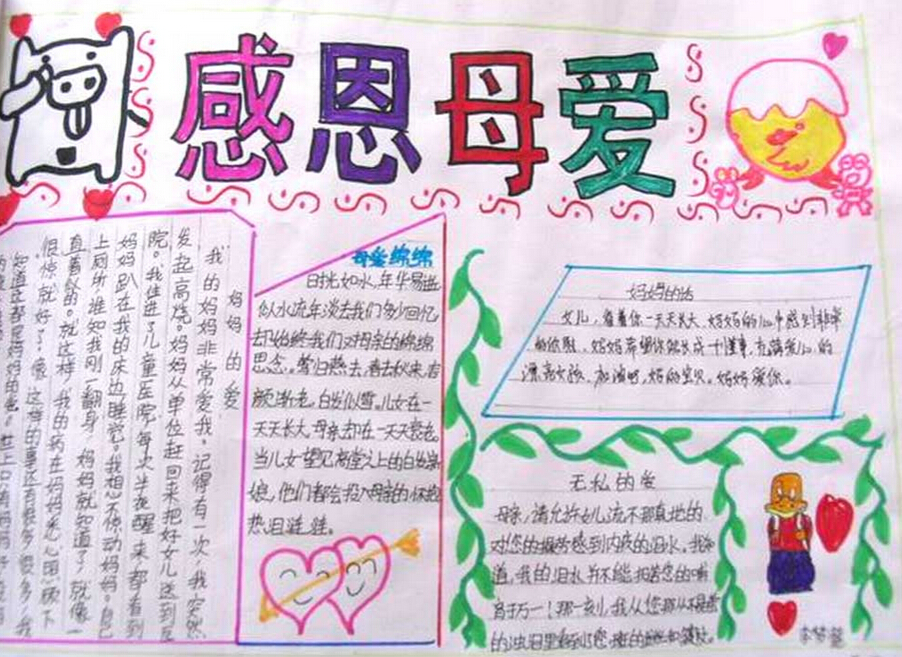 感恩母爱
妈妈的爱
我的妈妈非常爱我。记得有一次,我突然
发起高烧。妈妈从单位赶回来把好女儿送到医
院。我住进了儿童医院,每次半夜醒来,都看到
妈妈趴在我的床边睡觉。我想不惊动妈妈。自己
上厕所谁知我刚一翻身,妈妈就知道了,就像一
直看似的。就这样,我的病在妈妈悉心照顾下
很惊就好了。像这样的事还有很多,很多,我
知道这都是妈妈的爱。世上只有妈妈好
母爱绵绵
日光如水,年华易逝
似水流年淡去我们多少回忆
却始终我们对母亲的绵绵
思念。莺归燕去,春去秋来,容
颜渐老。白发似雪。儿女在一
天天长大,母亲却在一天天衰老。
当儿女望见高堂之上的白发亲
娘,他们都会投入母亲的怀抱
热泪涟涟。
妈妈的话
女儿,看着你一天天长大,妈妈的心中感到非常
的欣慰,妈妈希望你能长成一个懂事,充满爱心的
漂亮女孩,加油吧,妈的宝贝。妈妈爱你。
无私的爱
母亲,请允许女儿流不那真地的
对您的操劳感到内疚的泪水。我知
道,我的泪水并不能报答您的哺
育于万一!那一刻,我从您那从不悬
的浊泪里看到了您